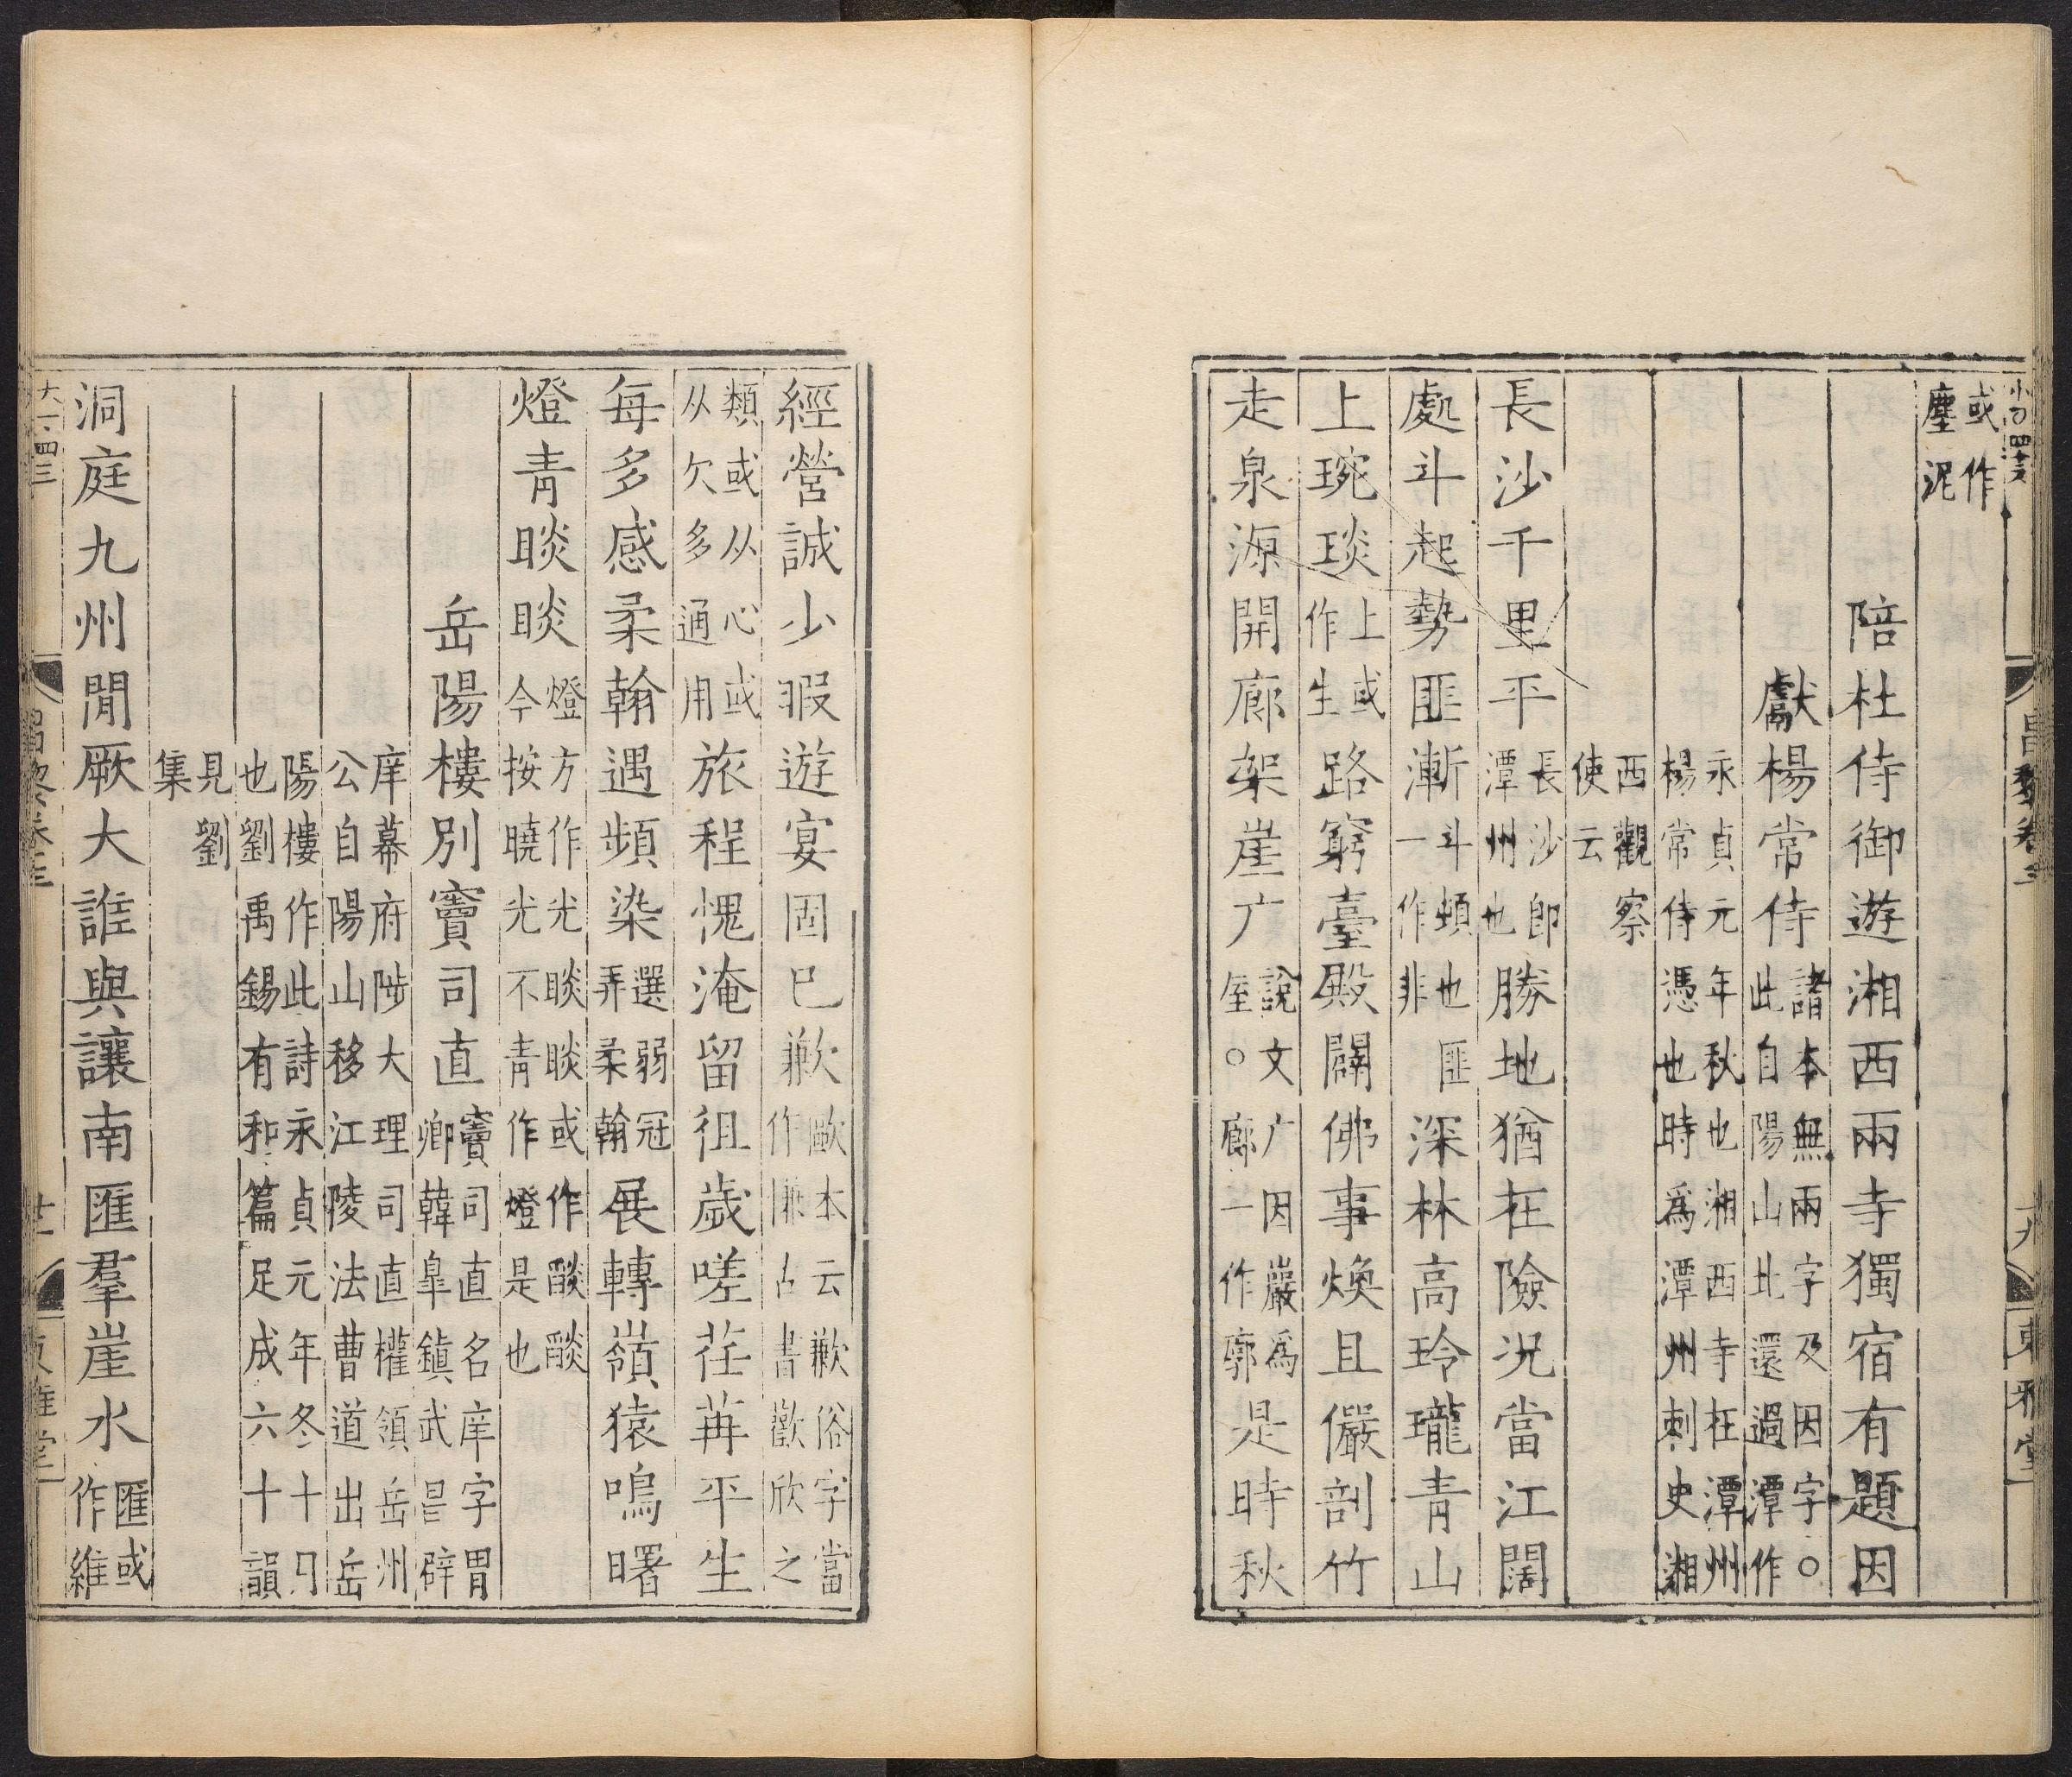 昌黎卷三 十九 東雅堂
或作塵泥
陪杜侍御遊湘西兩寺獨宿有題因
獻楊常侍諸本無兩字及因字○此自陽山北還過潭作
永貞元年秋也湘西寺在潭州楊常侍憑也時爲潭州刺史湘
西觀察使云
長沙千里平長沙即潭州也勝地猶在險況當江闊
處斗起勢匪漸斗頓也匪一作非深林高玲瓏青山
上琬琰上或作生路窮臺殿闢佛事煥且儼剖竹
走泉源開廊架崖广說文广因巖爲屋○廊一作廓是時秋
經營誠少暇遊宴固已歉歐本云歉俗字當作慊古書歡欣之
類或从心或从欠多通用旅程愧淹留徂歲嗟荏苒平生
每多感柔翰遇頻染選弱冠弄柔翰展轉嶺猿鳴曙
燈青睒睒燈方作光睒睒或作酸酸今按曉光不青作燈是也
岳陽樓別竇司直竇司直名庠字胄卿韓臯鎮武昌辟
庠幕府陟大理司直權領岳州公自陽山移江陵法曹道出岳
陽樓作此詩永貞元年冬十月也劉禹錫有和篇足成六十韻
見劉集
洞庭九州間厥大誰與讓南匯羣崖水匯或作維